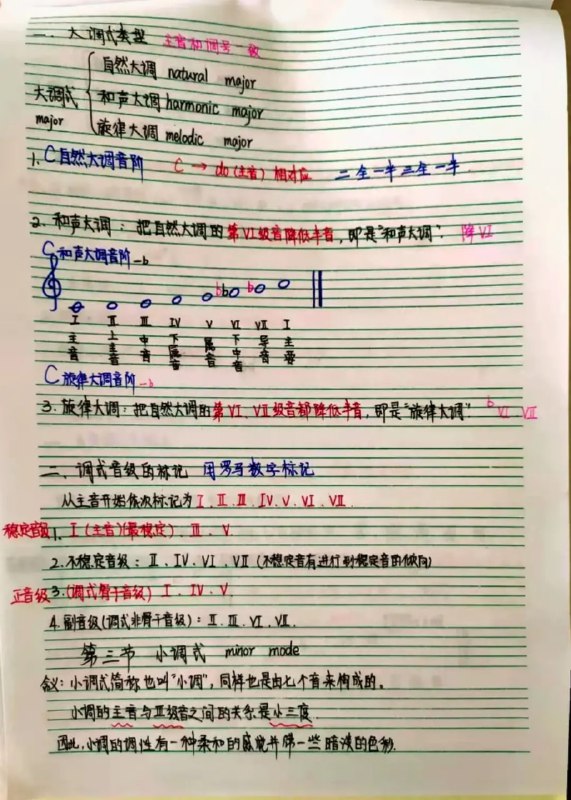 一、大调式类型 主音和调号 致
自然大调 natural major
大调式 和声大调 harmonic major
major
旋律大调 melodic major
1. C自然大调音阶 C → do(主音)相对应 二全一半三全一半
2. 和声大调：把自然大调的第VI级音降低半音，即是"和声大调". 降VI
C和声大调音阶 -b
b b b
I II III IV V VI VII I
主音 上主音 中音 下属音 属音 下中音 导音 主音
C旋律大调音阶 -b
3. 旋律大调：把自然大调的第VI、VII级音都降低半音，即是"旋律大调" b VI VII
二、调式音级的标记 用罗马数字标记
从主音开始依次标记为 I、II、III、IV、V、VI、VII
稳定音级 1. I (主音)(最稳定)、III、V.
2. 不稳定音级：II、IV、VI、VII (不稳定音有进行到稳定音的倾向)
正音级 3.(调式骨干音级) I、IV、V.
4. 副音级(调式非骨干音级)：II、III、VI、VII.
第三节 小调式 minor mode
含义：小调式简称也叫"小调"，同样也是由七个音来构成的。
小调的主音与III级音之间的关系是小三度.
因此，小调的调性有一种柔和的感觉并带一些暗淡的色彩.